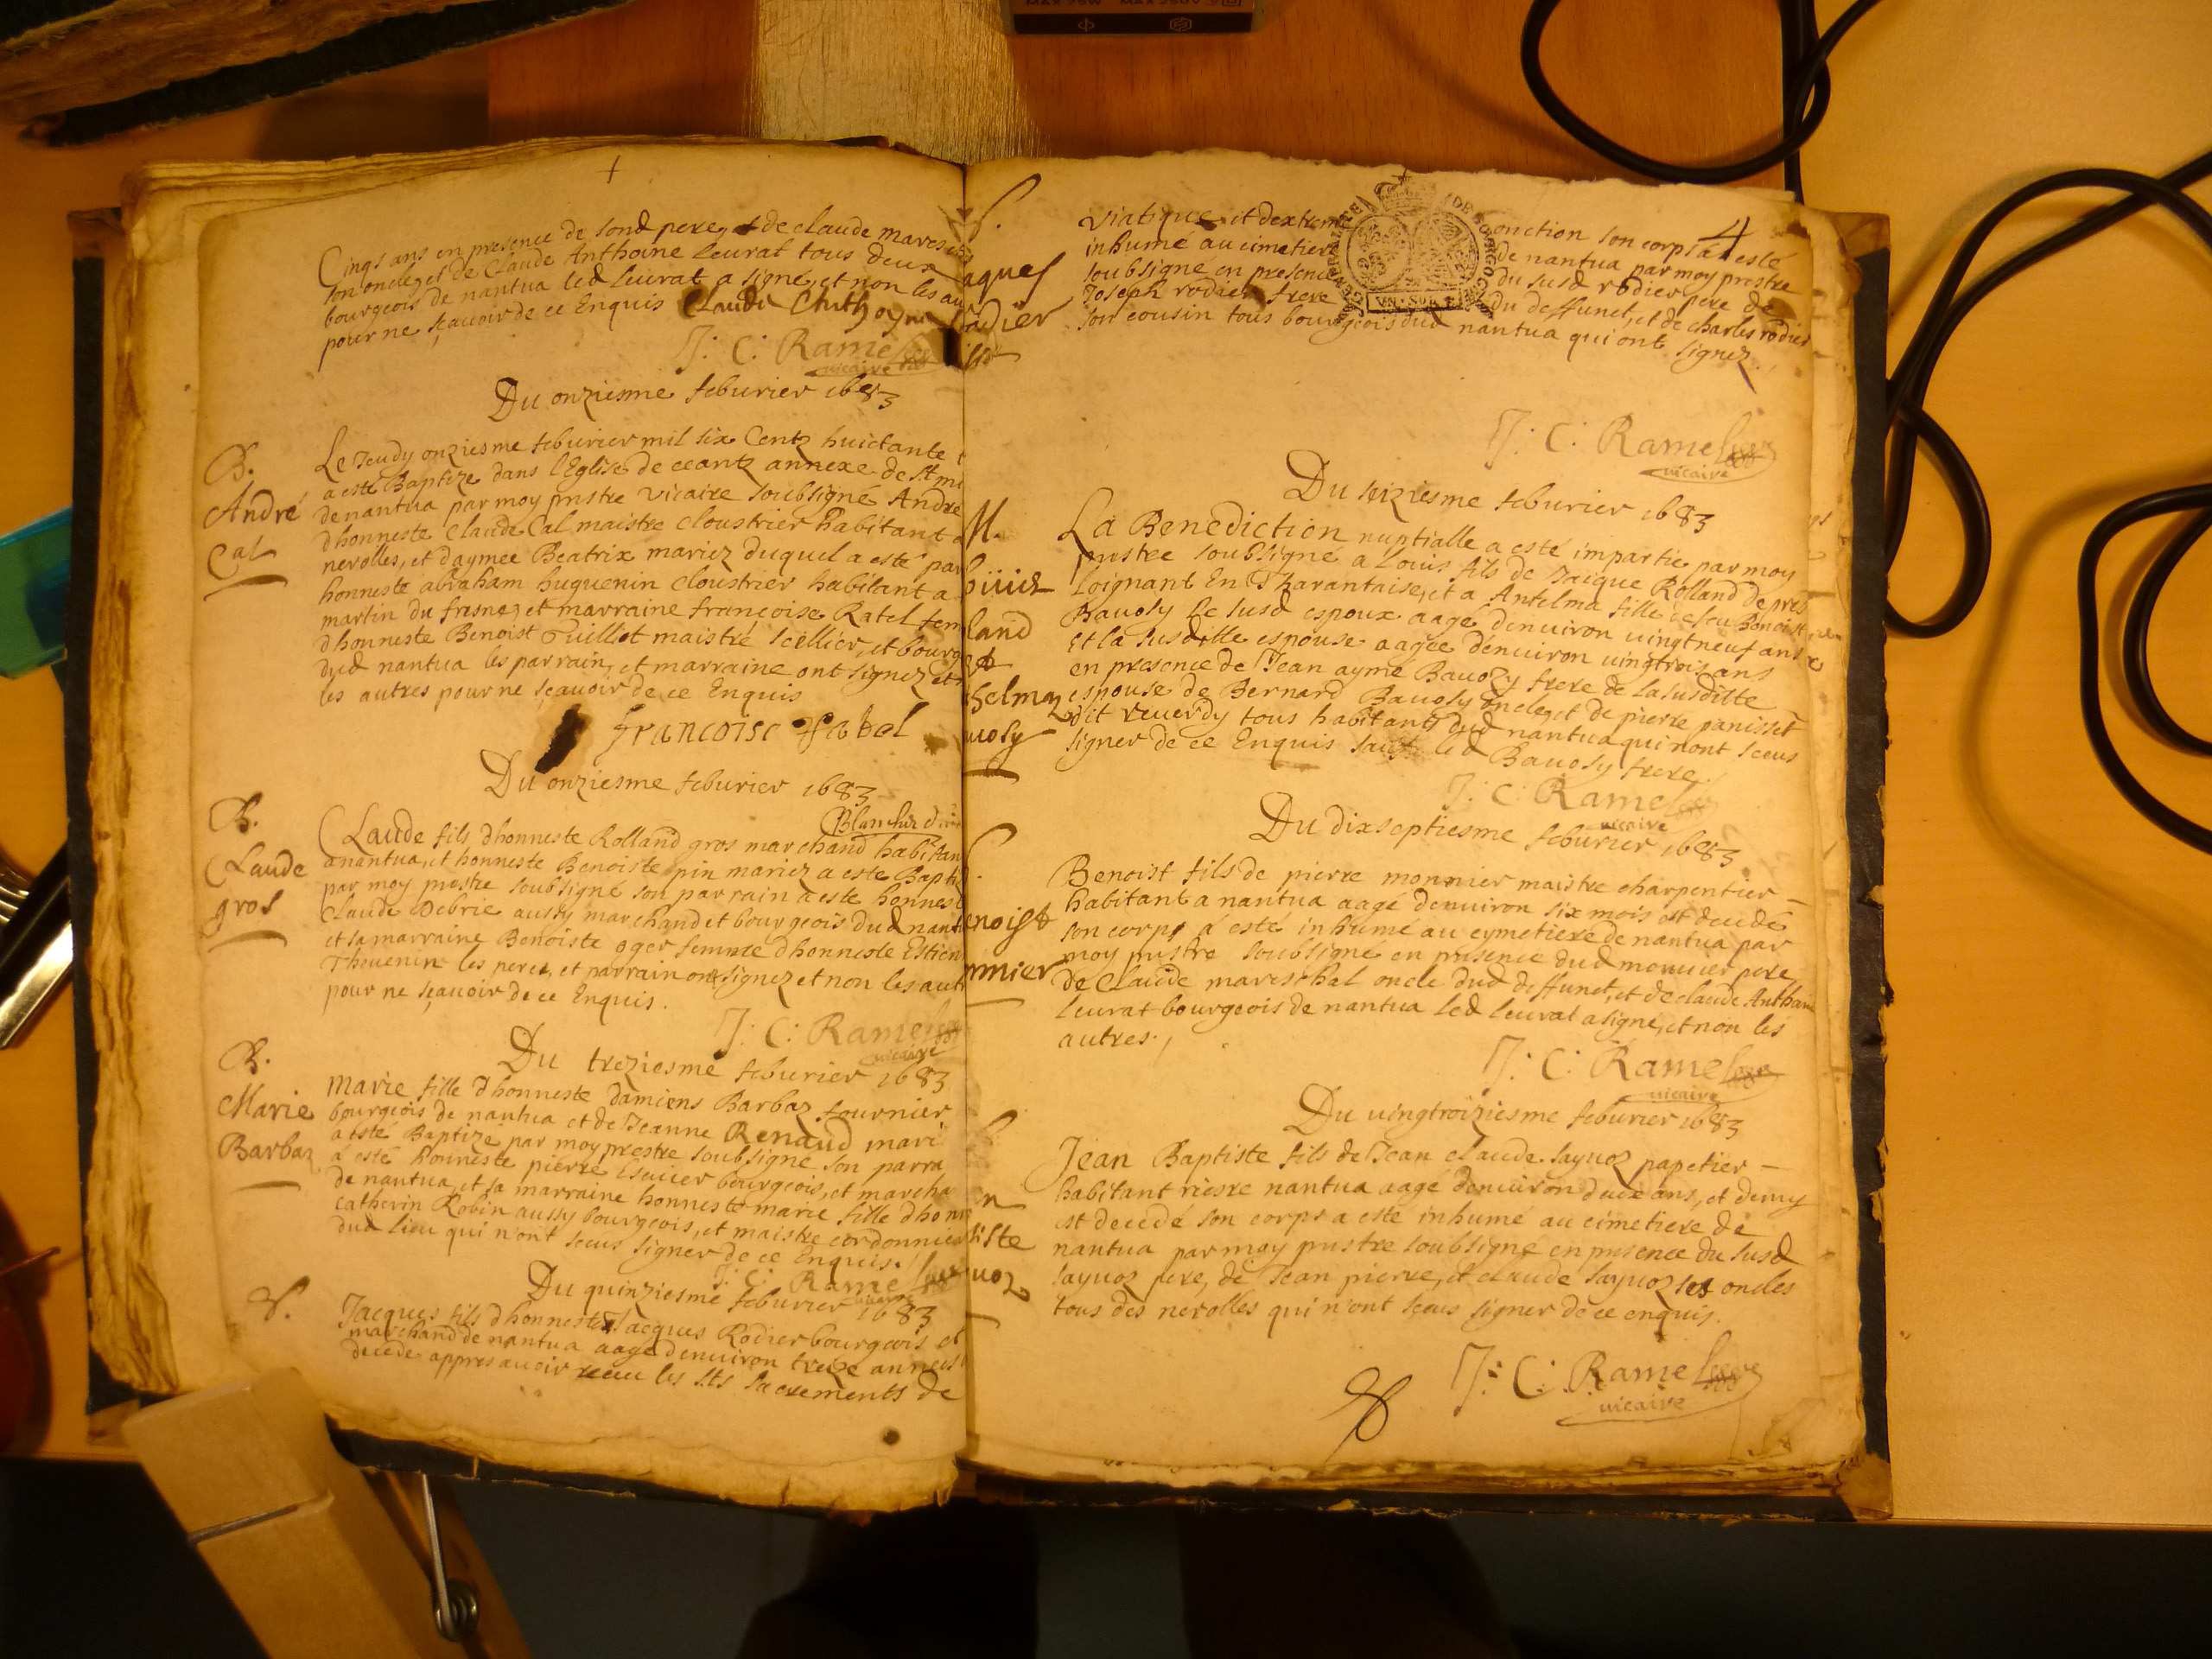 Cinqs ans en presence de sond pere, et de claude mares
son oncle, et de Claude Anthoine Leurat tous deux
bourgeois de nantua led Leurat a signé, et non les au
pour ne sçauoir de ce Enquis Claude Anthoyne
J: C: Rame
vicaire
Du onziesme feburier 1683
B.
André
Cal
Le Jeudy onziesme feburier mil six Centz huictante
a esté Baptize dans l'Eglise de ceantz annexe de St mi
de nantua par moy prestre vicaire soubsigné Andre
dhonneste Claude Cal maistre cloustrier habitant a
nerolles, et daymee Beatrix mariez duquel a esté par
honneste abraham huguenin cloustrier habitant a
martin du fresne, et marraine françoise Ratel fem
dhonneste Benoist Guilliot maistre scellier, et bourg
dud nantua les parrain, et marraine ont signez et
les autres pour ne sçauoir de ce Enquis
francoise
Du onziesme feburier 1683
B.
Claude
gros
Claude fils dhonneste Rolland gros marchand habitan
a nantua, et honneste Benoiste pin mariez a este Bapti
par moy prestre soubsigné son parrain a este honnest
Claude Debrie aussy marchand et bourgeois dud nant
et sa marraine Benoiste oger femme dhonneste Estien
Thouenin les peres, et parrain ont signez et non les aut
pour ne sçauoir de ce Enquis.
J: C: Rame
vicaire
Du treziesme feburier 1683
B.
Marie
Barbaz
Marie fille dhonneste damiens Barbaz tournier
bourgeois de nantua et de Jeanne Renaud mari
a esté Baptize par moy prestre soubsigné son parra
a esté honneste pierre Escuier bourgeois, et marcha
de nantua, et sa marraine honneste marie fille dhonn
catherin Robin aussy bourgeois, et maistre cordonnier
dud lieu qui n'ont sceus signer de ce Enquis.
J: C: Rame
vicaire
Du quinziesme feburier 1683
S.
Jacques fils dhonneste Jacques Rodier bourgeois et
marchand de nantua aagé denuiron treize annees
decede appres auoir receu les Sts sacrements de
4
S.
aques
odier
viatique, et dextreme onction son corps a esté
inhumé au cimetiere de nantua par moy prestre
soubsigné en presence du susd rodier pere de
Joseph rodier frere du deffunct, et de charles rodier
son cousin tous bourgeois dud nantua qui ont signez.
J: C: Rame
vicaire
Du seiziesme feburier 1683
M.
land
et
helma
uosy
La Benediction nuptialle a esté impartie par moy
prestre soubsigné a Louis fils de Jacque Rolland de pres
loignant En Tharantaise, et a Antelma fille de feu Benoist
Bauosy le susd espoux aagé denuiron uingtneuf ans
Et la susditte espouse aagee denuiron uingtrois ans
en presence de Jean aymé Bauozy frere de la susditte
espouse de Bernard Bauosy oncle, et de pierre panisset
dit reuerdy tous habitants dud nantua qui n'ont sceus
signer de ce Enquis sauf led Bauosy frere.
J: C: Rame
vicaire
Du dixseptiesme feburier 1683
enoist
nnier
Benoist fils de pierre monnier maistre charpentier
habitant a nantua aagé denuiron six mois est decedé
son corps a esté inhumé au cymetiere de nantua par
moy prestre soubsigné en presence dud monnier pere,
de Claude mareschal oncle dud deffunct, et de claude Anthoine
leurat bourgeois de nantua led leurat a signé, et non les
autres.
J: C: Rame
vicaire
Du uingtroiziesme feburier 1683
en
tiste
uoz
Jean Baptiste fils de Jean claude sayuoz papetier
habitant riesre nantua aagé denuiron deux ans, et demy
est decedé son corps a esté inhumé au cimetiere de
nantua par moy prestre soubsigné en presence du susd
sayuoz pere, de Jean pierre, et claude sayuoz ses oncles
tous des nerolles qui n'ont sceus signer de ce enquis.
J: C: Rame
vicaire